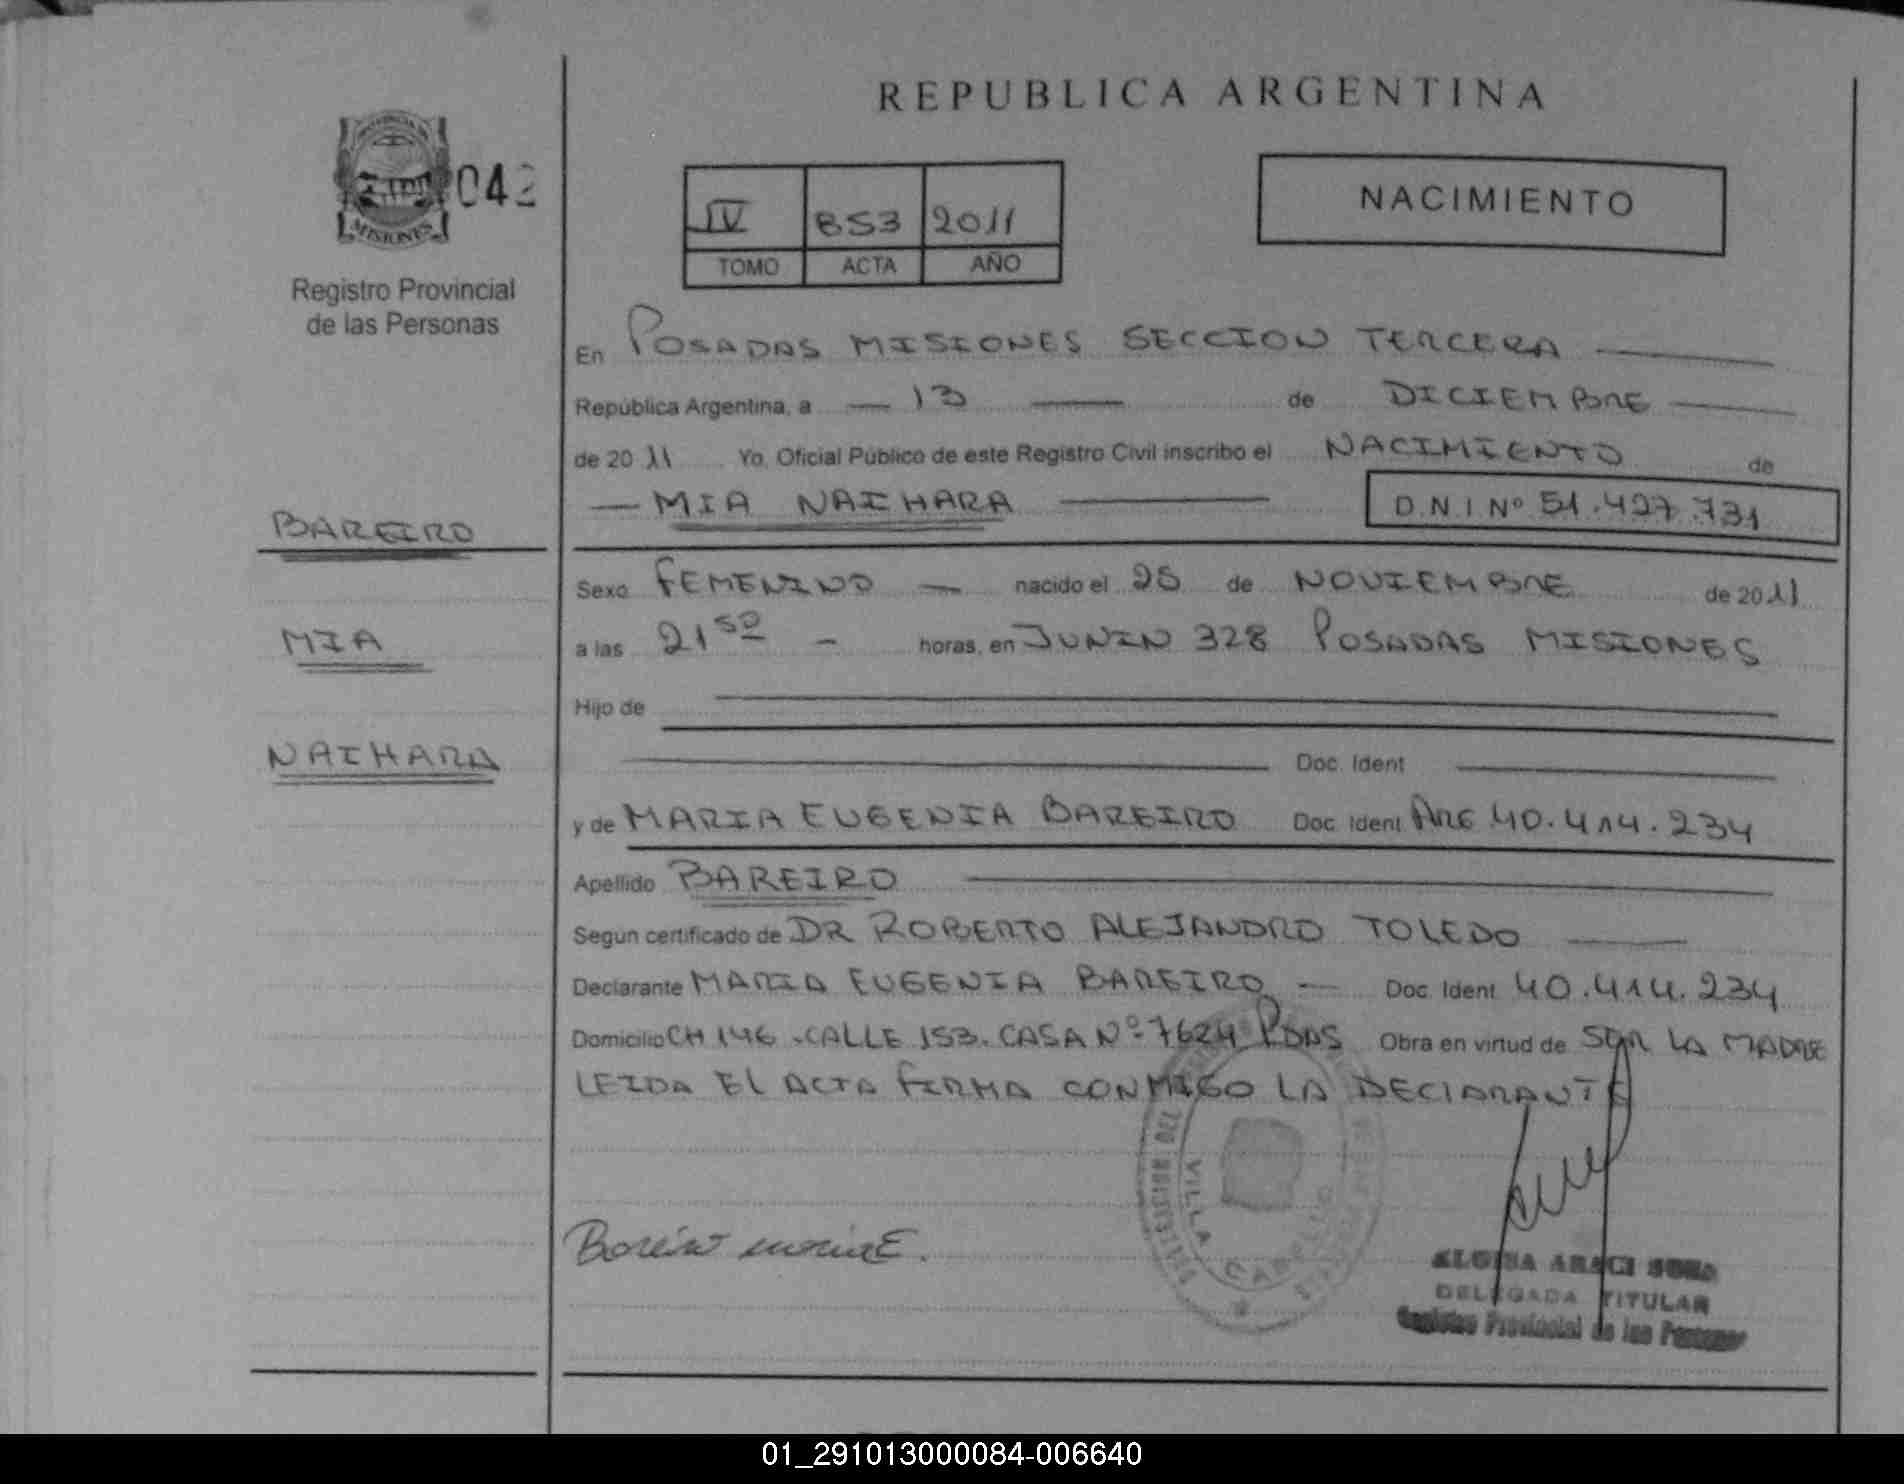 REPUBLICA ARGENTINA
PROVINCIA DE
MISIONES
042
Registro Provincial
de las Personas
NACIMIENTO
IV 853 2011
TOMO ACTA AÑO
En POSADAS MISIONES SECCION TERCERA
República Argentina, a — 13 — de DICIEMBRE
de 2011 Yo, Oficial Público de este Registro Civil inscribo el NACIMIENTO de
— MIA NAIHARA — D.N.I Nº 51.427.731
BAREIRO
MIA
NAIHARA
Sexo FEMENINO — nacido el 25 de NOVIEMBRE de 2011
a las 21 50 - horas, en JUNIN 328 POSADAS MISIONES
Hijo de
Doc. Ident
y de MARIA EUGENIA BAREIRO Doc. Ident ARG 40.414.234
Apellido BAREIRO
Segun certificado de DR ROBERTO ALEJANDRO TOLEDO
Declarante MARIA EUGENIA BAREIRO — Doc. Ident 40.414.234
Domicilio CH 146 - CALLE 153. CASA Nº 7624 PDAS Obra en virtud de SER LA MADRE
LEIDA EL ACTA FIRMA CONMIGO LA DECLARANTE
VILLA CABELLO
Bareiro maria E.
DELEGADA TITULAR
Registro Provincial de las Personas
01_291013000084-006640